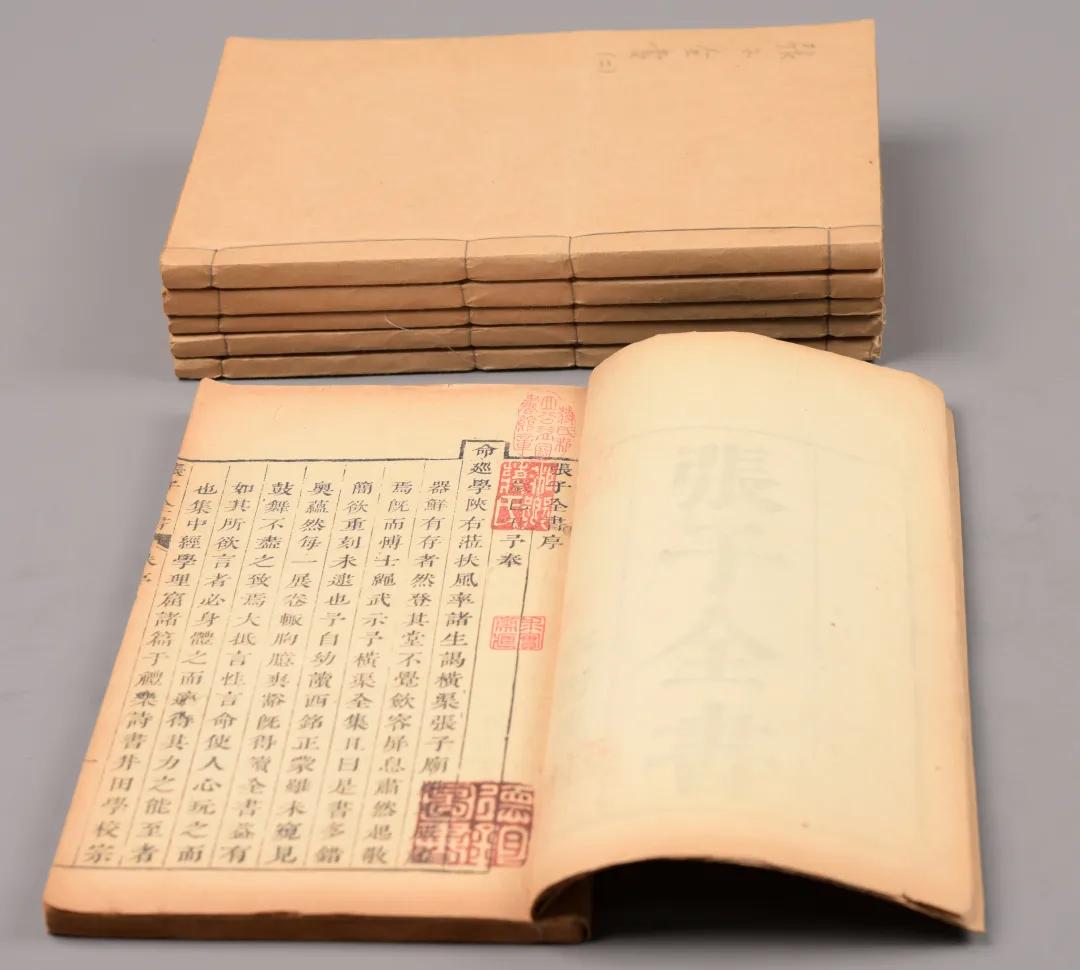 張子全書(二)
張子全書
張子全書序
予奉
命廵學陝右涖扶風率諸生謁橫渠張子廟
器鮮有存者然登其堂不覺斂容屏息肅然起敬
焉旣而博士繩武示予橫渠全集且曰是書多錯
簡欲重刻未逮也予自幼讀西銘正蒙雖未窺見
奧蘊然每一展卷輙胸臆爽豁旣得讀全書益有
鼓舞不盡之致焉大抵言性言命使人心玩之而
如其所欲言者必身體之而實得其力之能至者
也集中經學理窟諸篇于禮樂詩書井田學校宗
張子全書
序